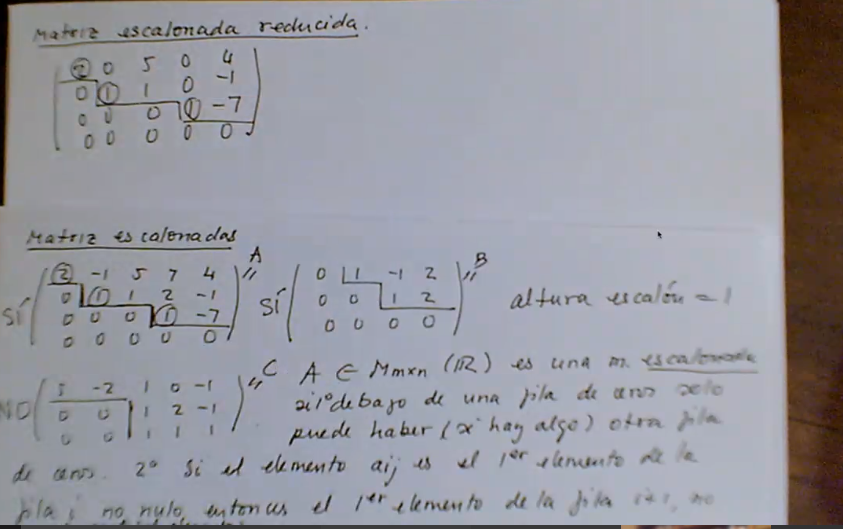 Matriz escalonada reducida.
2 0 5 0 4
0 1 1 0 -1
0 0 0 1 -7
0 0 0 0 0
Matriz escalonadas
SÍ 2 -1 5 7 4 A
0 1 1 2 -1
0 0 0 1 -7
0 0 0 0 0
SÍ 0 1 -1 2 B
0 0 1 2
0 0 0 0
altura escalón = 1
NO 3 -2 1 0 -1 C
0 0 1 2 -1
0 0 1 1 1
A ∈ Mmxn (IR) es una m. escalonada
si 1º debajo de una fila de ceros solo
puede haber (x hay algo) otra fila
de ceros. 2º Si el elemento aij es el 1er elemento de la
fila i no nulo, entonces el 1er elemento de la fila i+1, no